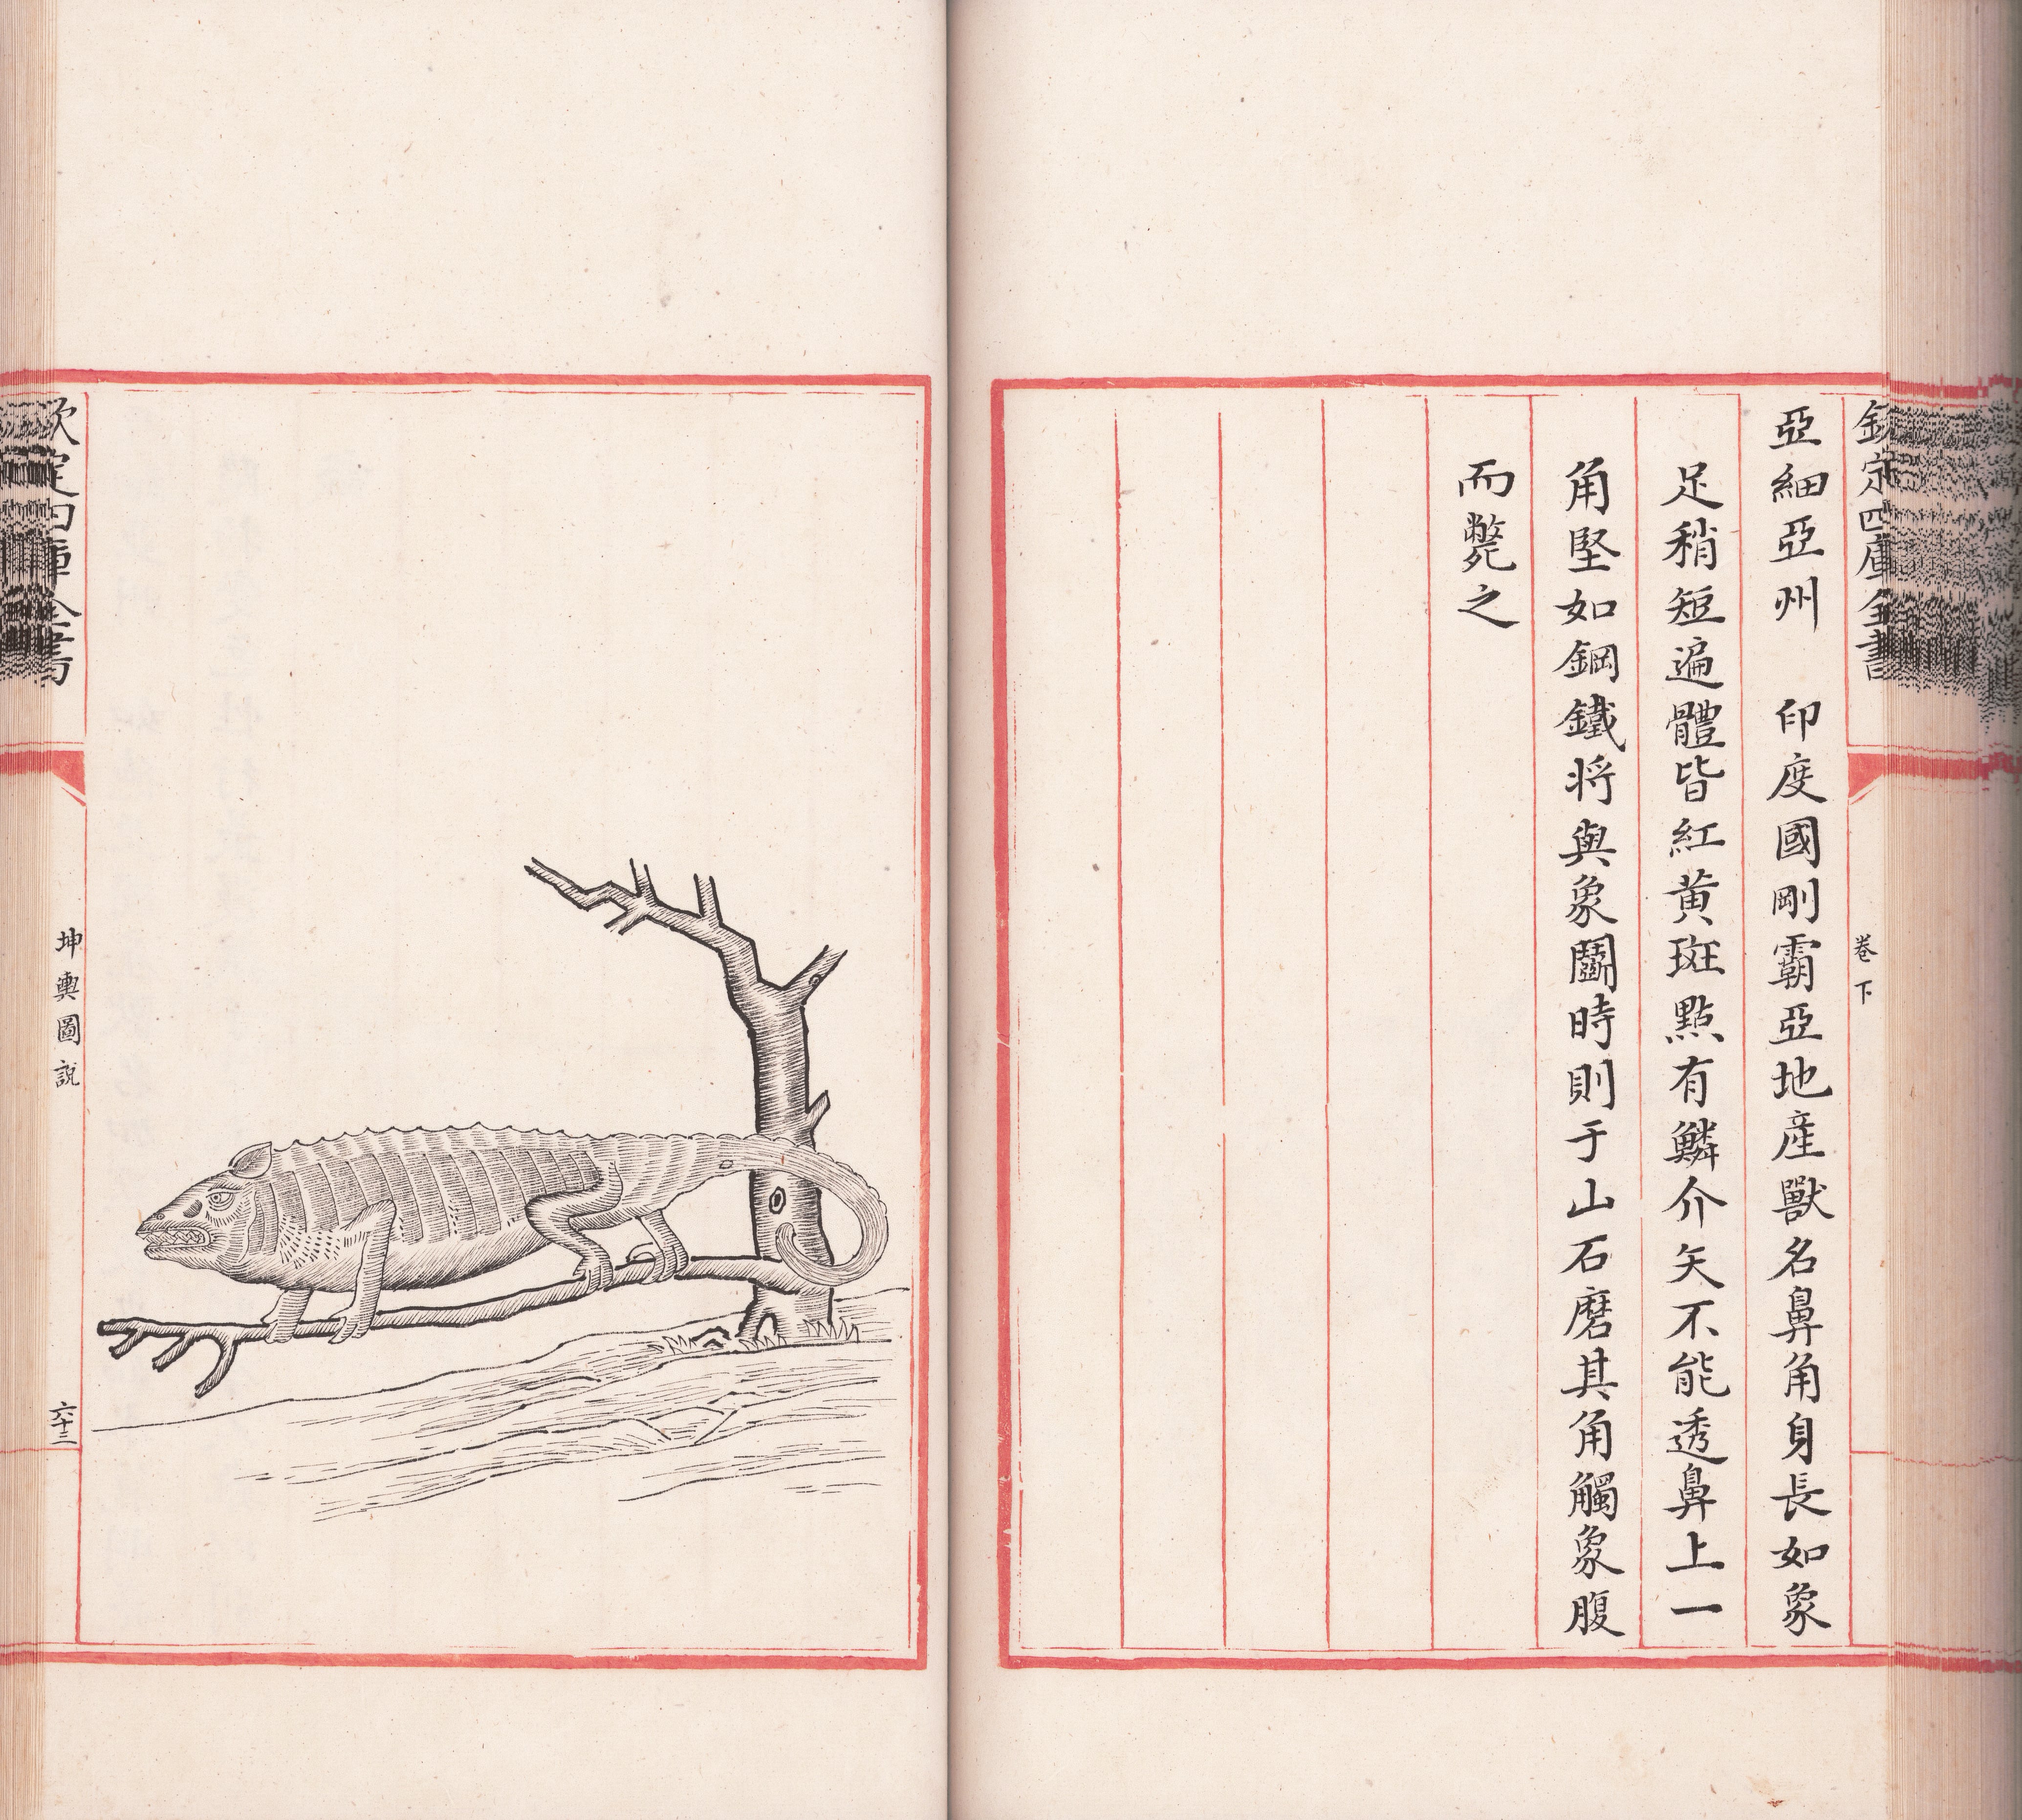 欽定四庫全書
卷下
亞細亞州　印度國剛霸亞地產獸名鼻角身長如象
足稍短遍體皆紅黃斑點有鱗介矢不能透鼻上一
角堅如鋼鐵將與象鬬時則于山石磨其角觸象腹
而斃之
欽定四庫全書
坤輿圖說
六十三